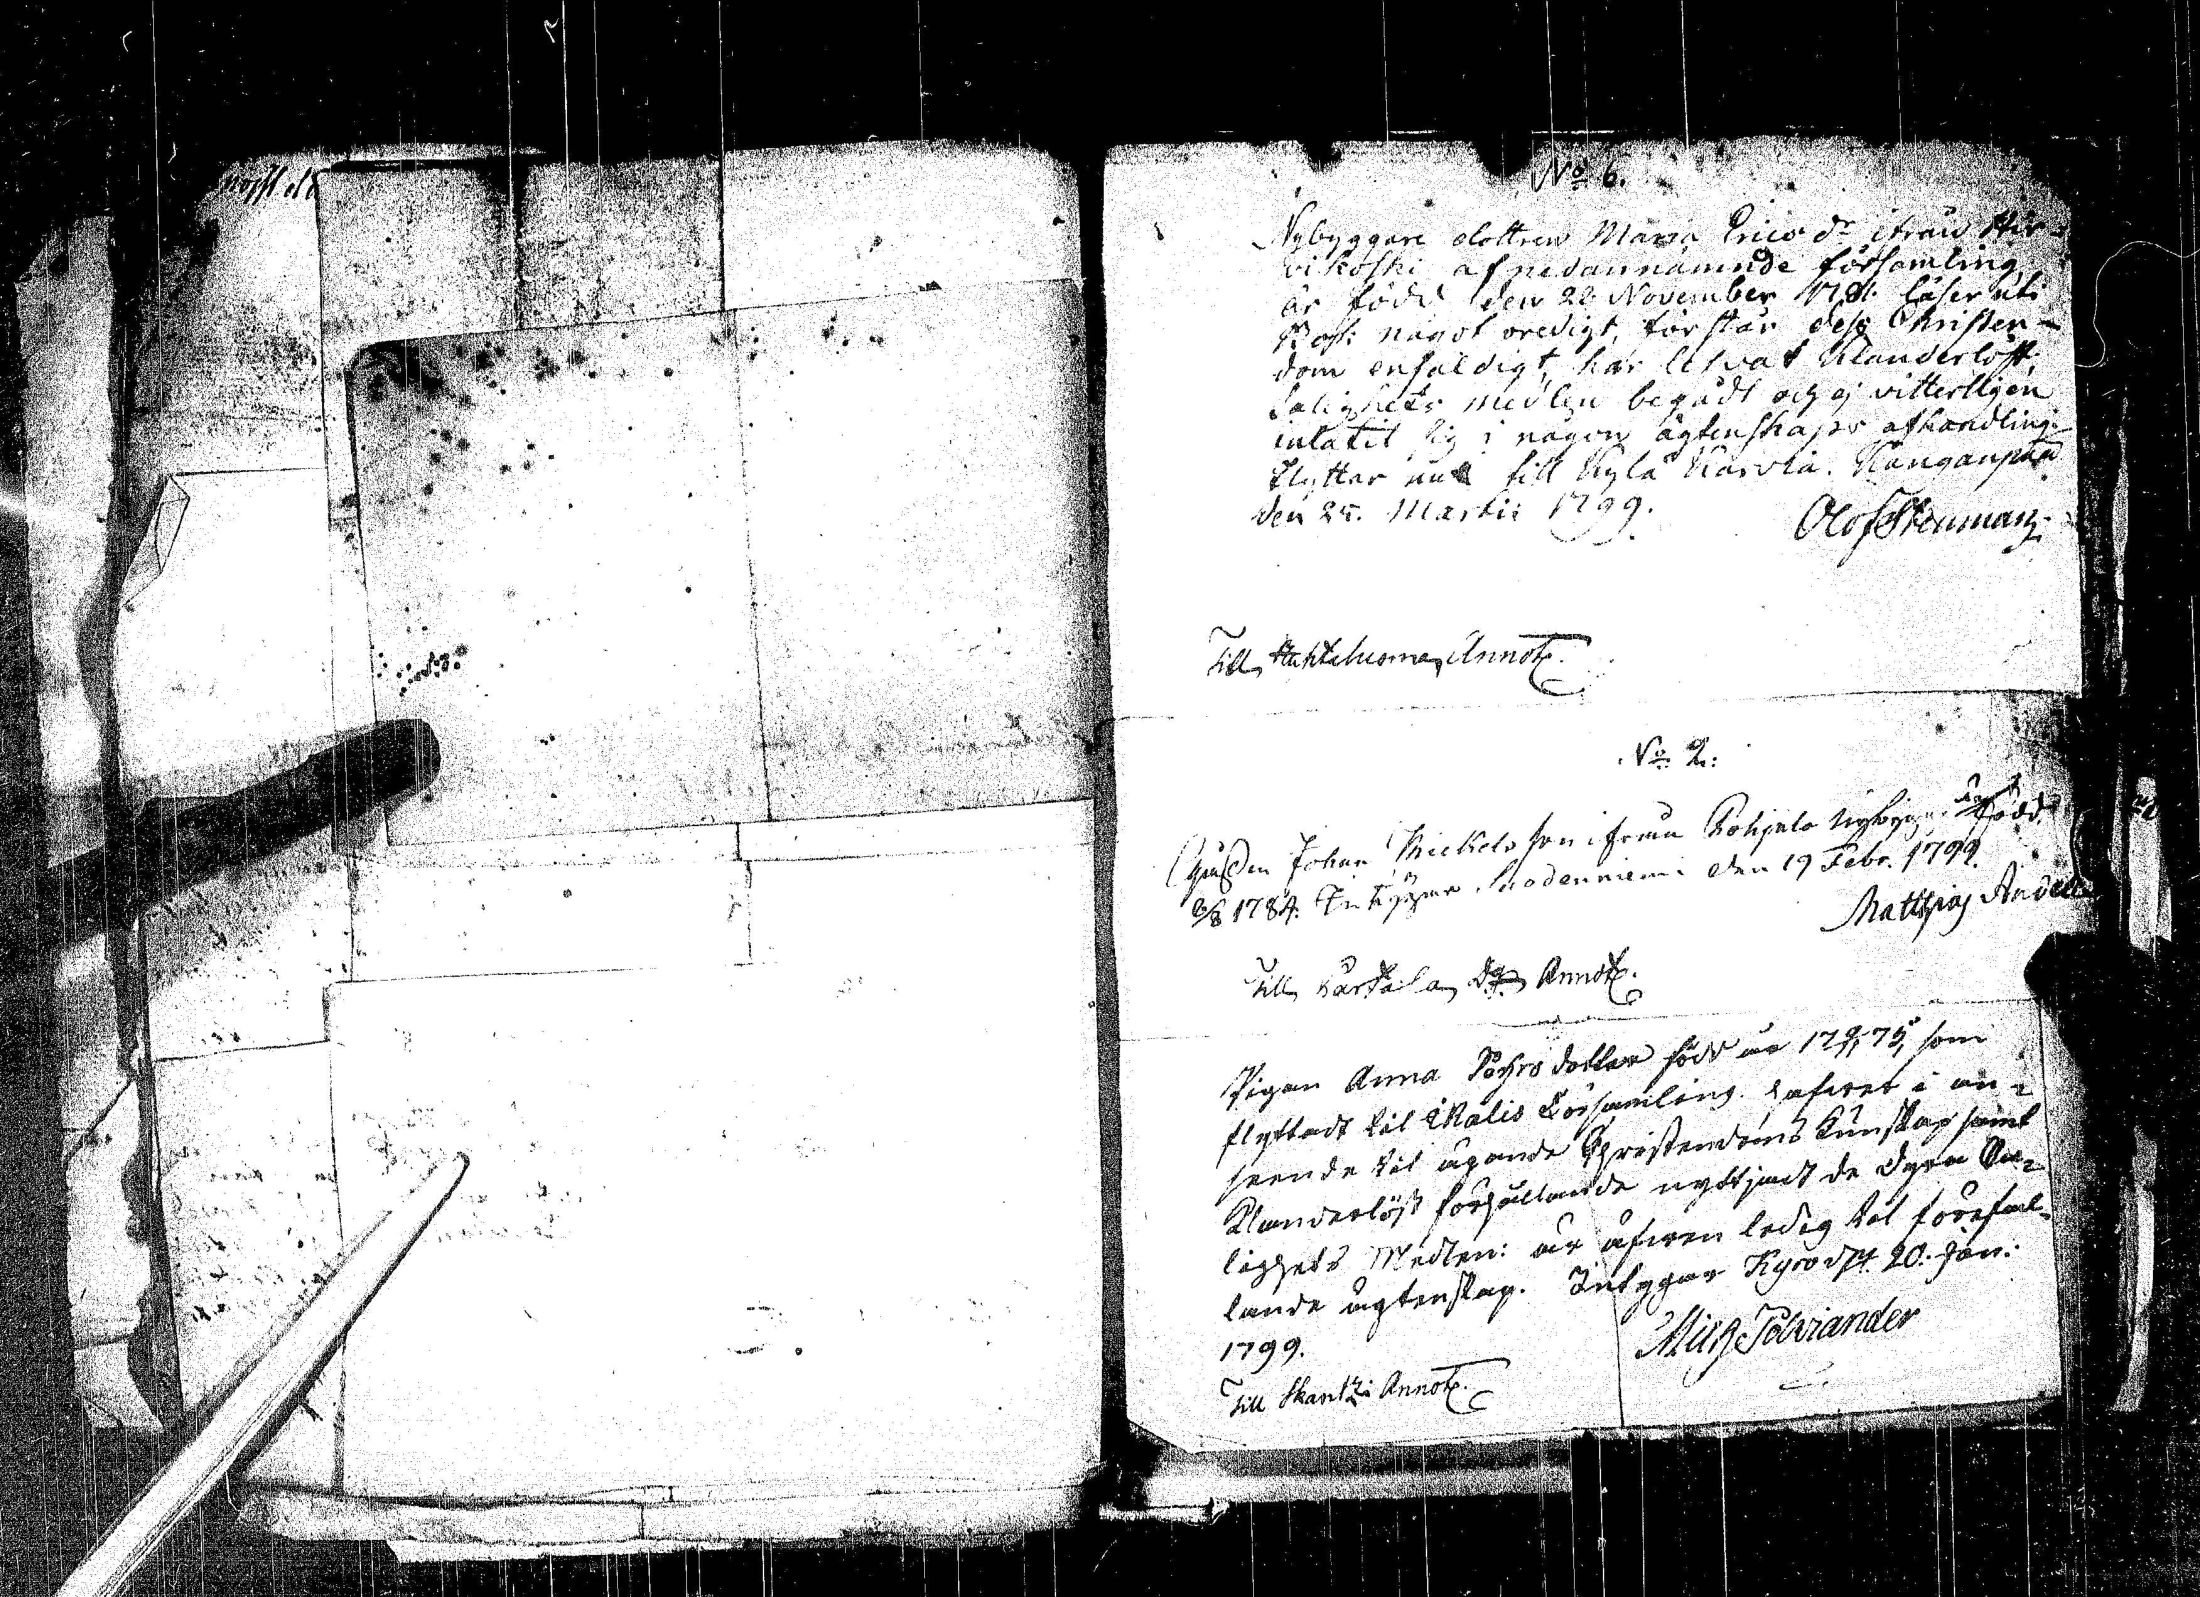 No 6.
Nybyggare dottren Maria Erics dr ifrån Kir-
vikoski af nedannämnde församling,
är född den 22 November 1781. läser uti
Bok: något oredigt, förstår dess Christen-
dom enfaldigt, har lefvat klanderlöst,
salighets medlen begådt och ej vitterligen
inlåtit sig i någon ägtenskaps afhandling.
Flyttar nu till Kylä Karvia. Kanganpää
den 25. Martii 1799.
Olof Stenman
Till Annot.
No 2:
Gossen Johan Mickels son ifrån Pohjala nybygge är född
1784. Intygar Suodenniemi den 19 Febr. 1799.
Matthias
Till Kartala Annot.
Pigan Anna dotter född år 1775, som
flyttadt til Ikalis Församling. hafver i an-
seende til ägande Christendoms kunskap samt
Klanderlöst förhållande nyttjadt de dyra Sa-
lighets Medlen: är äfven ledig til förefal-
lande ägtenskap. Intygar Kyro d. 20. Jan:
1799.
Mich Polviander
Till Skantzi Annot.